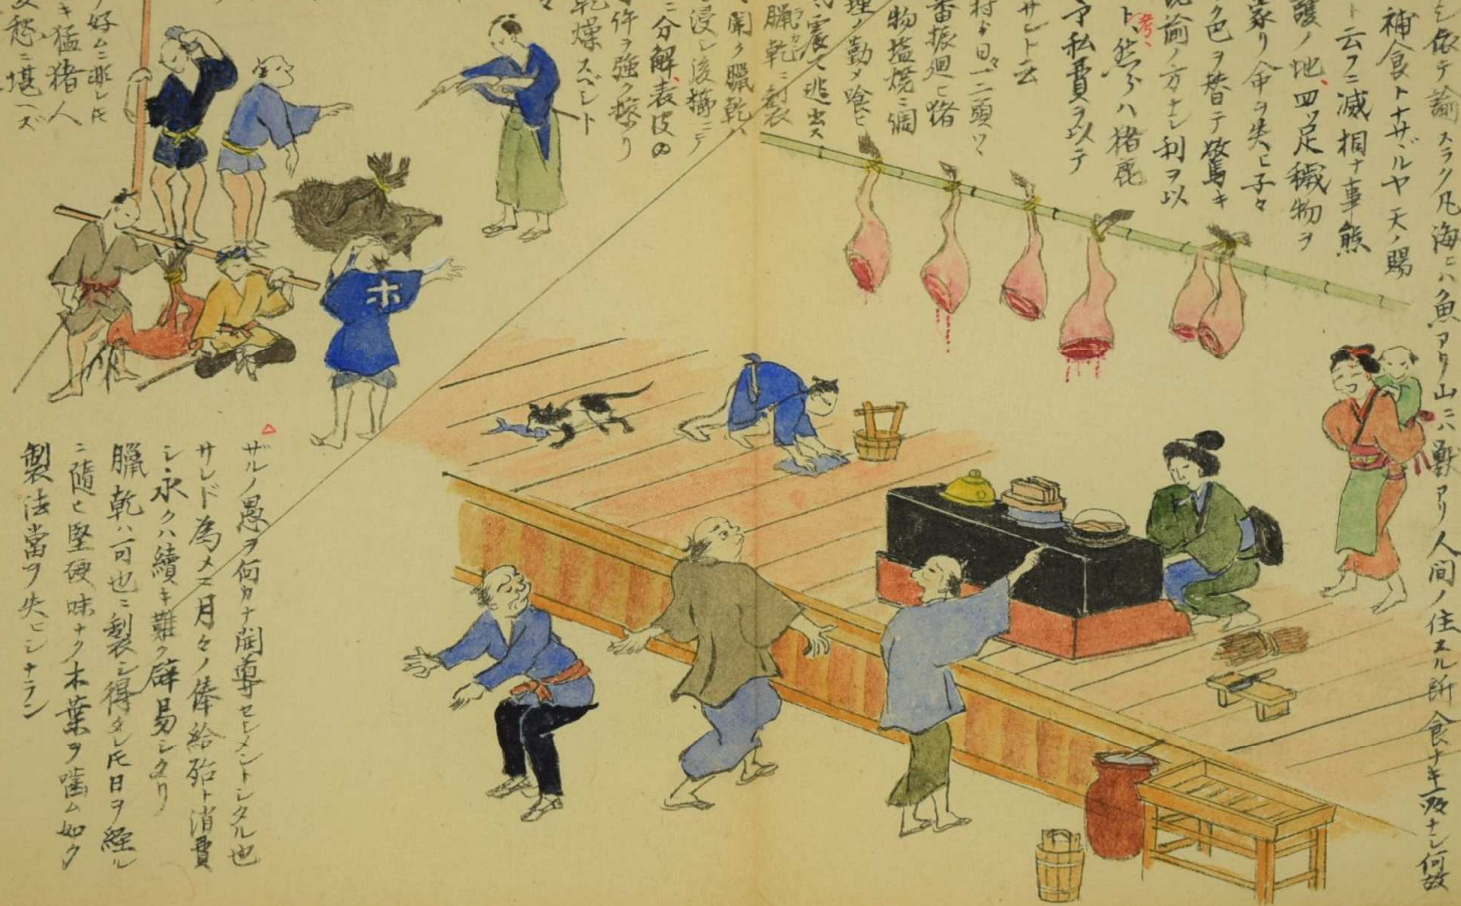 依テ諭スラク凡海ニハ魚アリ山ニハ獣アリ人間ノ住エル所食ナキ
補食トナサヾルヤ天ノ賜
ト云フニ減相ナ事熊
護ノ地、四ツ足穢物ヲ
蒙リ命ヲ失ヒ子々
ク色ヲ替テ驚キ
説諭ノ方ナシ利ヲ以
ト、然ラハ猪鹿
予私費ヲ以テ
サント云
一二頭ツヽ
番振廻ヒ
物塩焼ニ調
理ノ勤メ喰ヒ
震テ逃出ス
臘乾ニ製
開ク臘乾ハ
浸シ後
ニ分解、表皮の
件ヲ強ク擦リ
乾燥スベシト
好ムニ非レ氏
キ猛猪人
愁ニ堪ヘズ
ホ
ザルノ愚ヲ何カナ開導セシメントシタル也
サレド為メニ月々ノ俸給殆ト消費
シ永クハ續キ難ク辟易シタリ
臘乾ハ可也ニ製シ得タレ氏日ヲ経ル
ニ隨ヒ堅硬味ナク木葉ヲ噛ム如ク
製法當ヲ失ヒシナラン